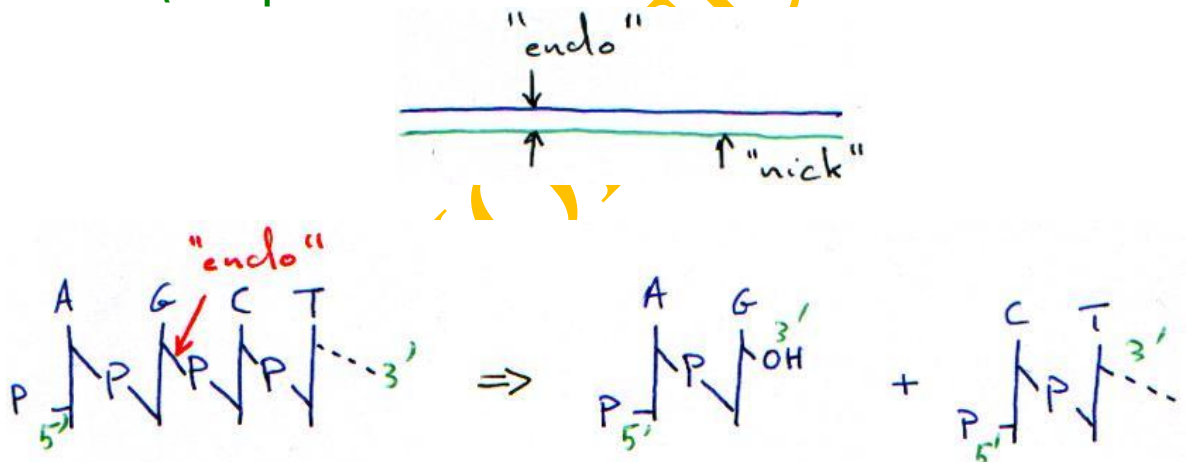 "endo"
"nick"
"endo"
A G C T
P P P P 3'
5'
⇒
A G
3'
P OH
P
5'
+
C T
3'
P
P
5'